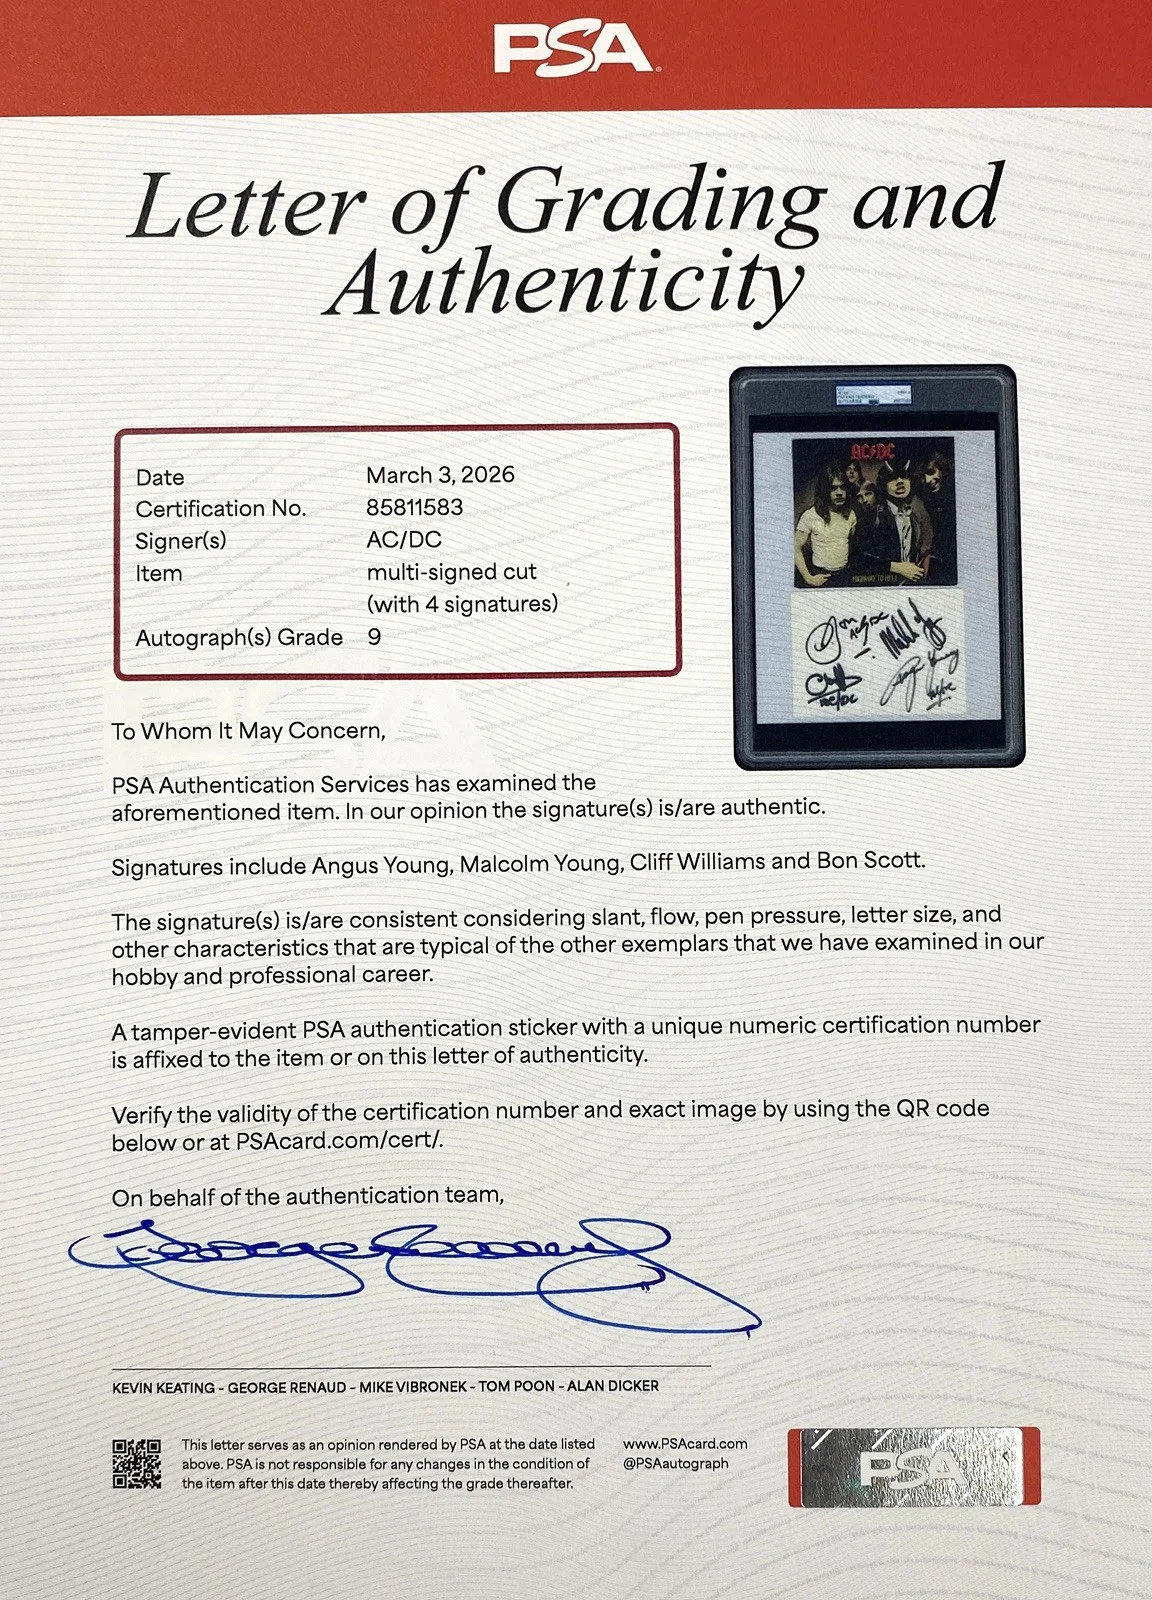 PSA
Letter of Grading and
Authenticity
Date March 3, 2026
Certification No. 85811583
Signer(s) AC/DC
Item multi-signed cut
(with 4 signatures)
Autograph(s) Grade 9
AC/DC
HIGHWAY TO HELL
To Whom It May Concern,
PSA Authentication Services has examined the
aforementioned item. In our opinion the signature(s) is/are authentic.
Signatures include Angus Young, Malcolm Young, Cliff Williams and Bon Scott.
The signature(s) is/are consistent considering slant, flow, pen pressure, letter size, and
other characteristics that are typical of the other exemplars that we have examined in our
hobby and professional career.
A tamper-evident PSA authentication sticker with a unique numeric certification number
is affixed to the item or on this letter of authenticity.
Verify the validity of the certification number and exact image by using the QR code
below or at PSAcard.com/cert/.
On behalf of the authentication team,
KEVIN KEATING - GEORGE RENAUD - MIKE VIBRONEK - TOM POON - ALAN DICKER
This letter serves as an opinion rendered by PSA at the date listed
above. PSA is not responsible for any changes in the condition of
the item after this date thereby affecting the grade thereafter.
www.PSAcard.com
@PSAautograph
PSA